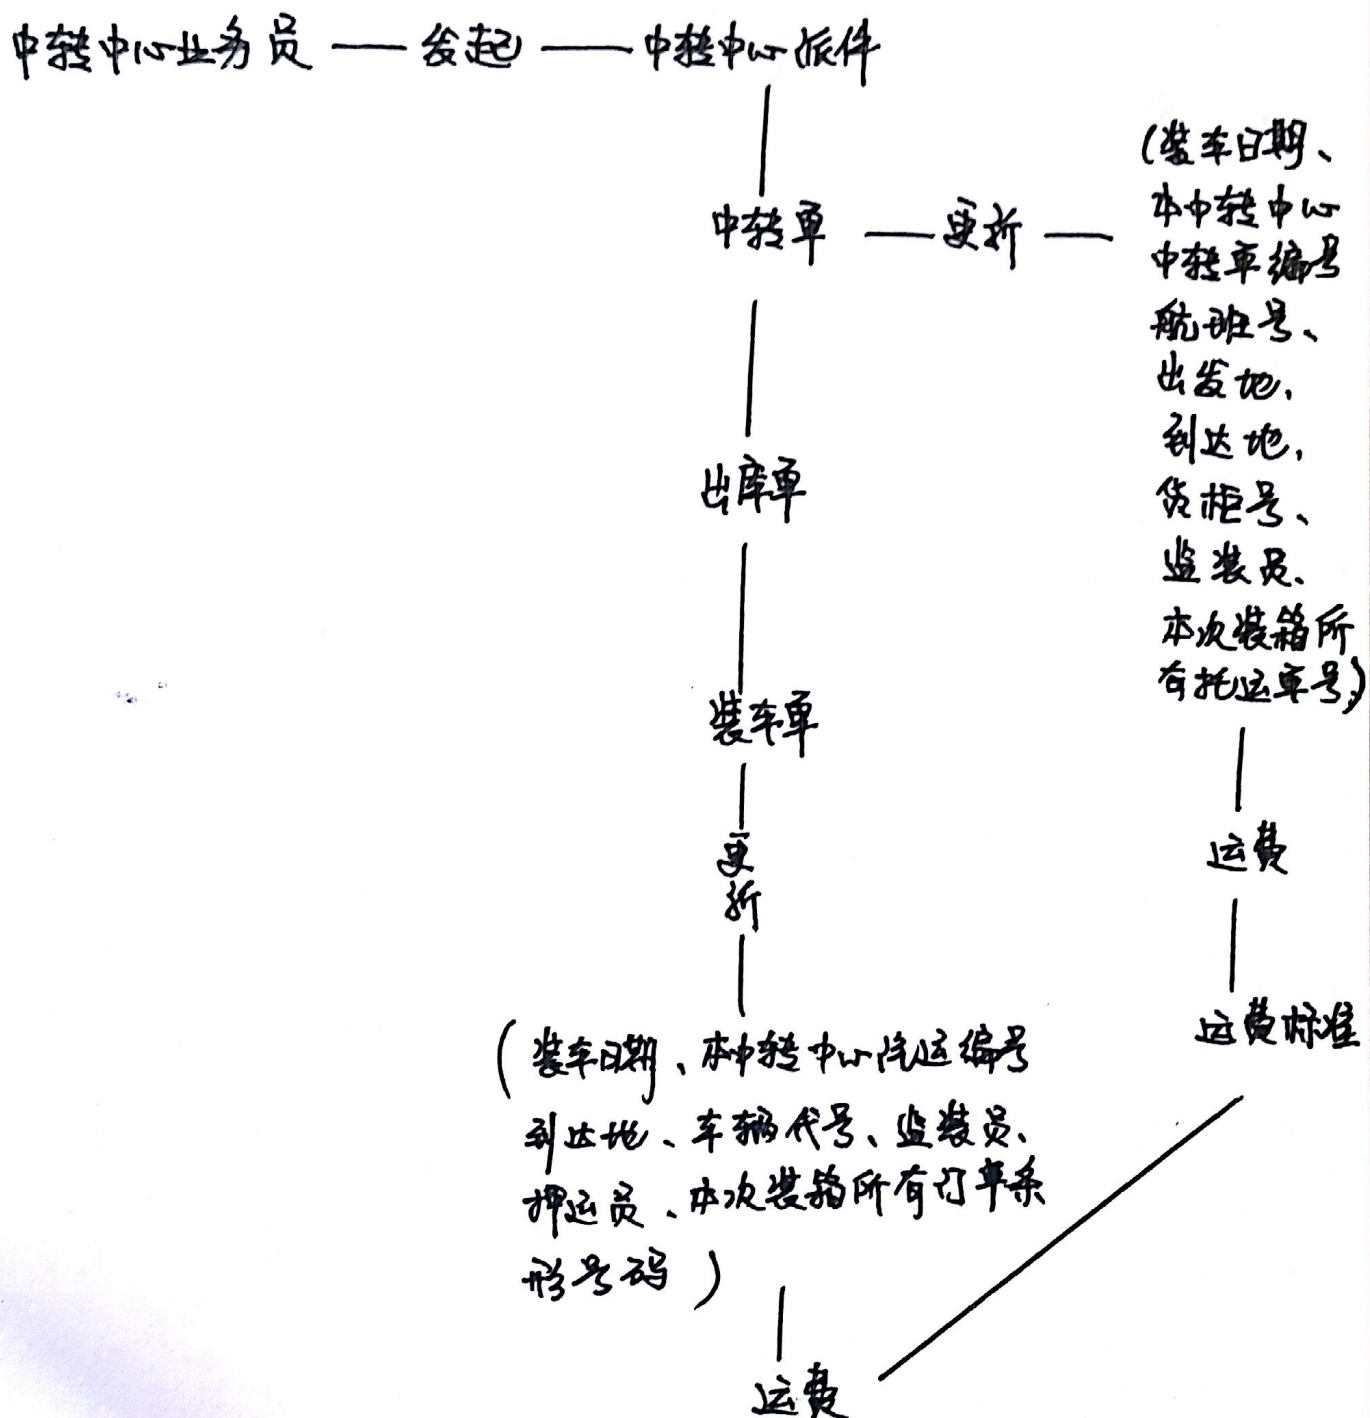 中转中心业务员 — 发起 — 中转中心派件
中转单 — 更新 —
(装车日期、
本中转中心
中转单编号
航班号、
出发地、
到达地、
货柜号、
监装员、
本次装箱所
有托运单号)
出库单
装车单
更
新
运费
运费标准
(装车日期、本中转中心汽运编号
到达地、车辆代号、监装员、
押运员、本次装箱所有订单条
形号码)
运费